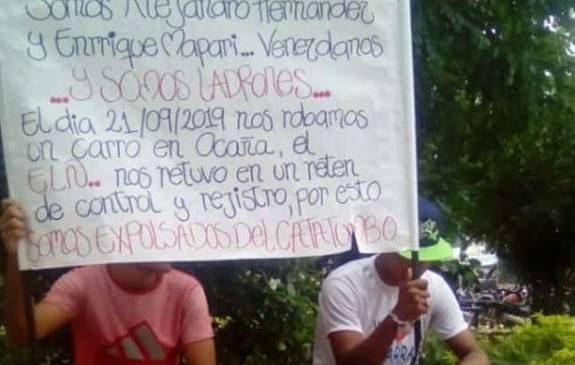 Somos Alejandro Hernandez
y Enrrique Mapari... Venezolanos
...Y SOMOS LADRONES...
El dia 21/09/2019 nos robamos
un carro en Ocaña, el
ELN... nos retuvo en un reten
de control y rejistro, por esto
SOMOS EXPOLSADOS DEL CATATUMBO